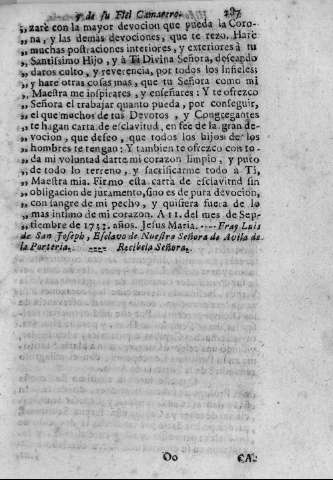 y de su Fiel Camarero. 287
„ zarè con la mayor devocion que pueda la Coro-
„ na, y las demas devociones, que te rezo. Harè
„ muchas postraciones interiores, y exteriores à tu
„ Santissimo Hijo, y à Ti Divina Señora, deseando
„ daros culto, y reverencia, por todos los infieles
„ y harè otras cosas mas, que tu Señora como mi
„ Maestra me inspirares, y enseñares: Y te ofrezco
„ Señora el trabajar quanto pueda, por conseguir,
„ el que muchos de tus Devotos, y Congregantes
„ te hagan carta de esclavitud, en fee de la gran de-
„ vocion, que deseo, que todos los hijos de los
„ hombres te tengan: Y tambien te ofrezco con to-
„ da mi voluntad darte mi corazon limpio, y puro
„ de todo lo terreno, y sacrificarme todo à Ti,
„ Maestra mia. Firmo esta carta de esclavitud sin
„ obligacion de juramento, sino es de pura devocion,
„ con sangre de mi pecho, y quisiera fuera de lo
„ mas intimo de mi corazon. A 11. del mes de Sep-
„ tiembre de años. Jesus Maria. ---- Fray Luis
de San Joseph, Esclavo de Nuestra Señora de Avila de
la Porteria. ---- Recibela Señora.
Oo CA-